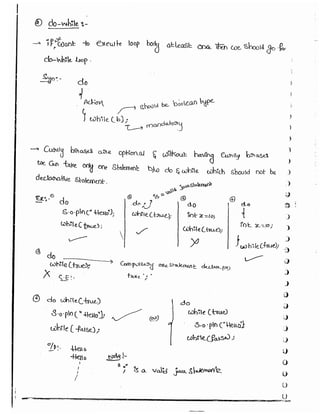 ② do-while :-
→ if we want to execute loop body atleast one then we should go for
do-while loop.
Syn:- do
{
Action
} while(b); → should be boolean type
→ mandatory
→ Curly braces are optional & without having curly braces
we can take only one statement b/w do & while which should not be
declarative statement.
Ex:- ① do
S.o.pln("Hello");
while(true);
✓
② do ; → is a valid java statement
while(true);
✓
③ do
int x=10;
while(true);
X
④ do
{
int x=10;
} while(true);
✓
⑤ do
while(true); → Compulsory one statement declare
X C.E:-
⑥ do while(true)
S.o.pln("Hello");
while(false);
✓
(or)
do
while(true)
S.o.pln("Hello");
while(false);
o/p:- Hello
Hello
Note:-
";" is a valid java statement.